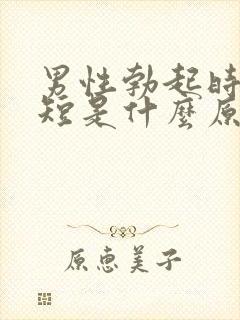 男性勃起時
短是什麼原
原惠美子